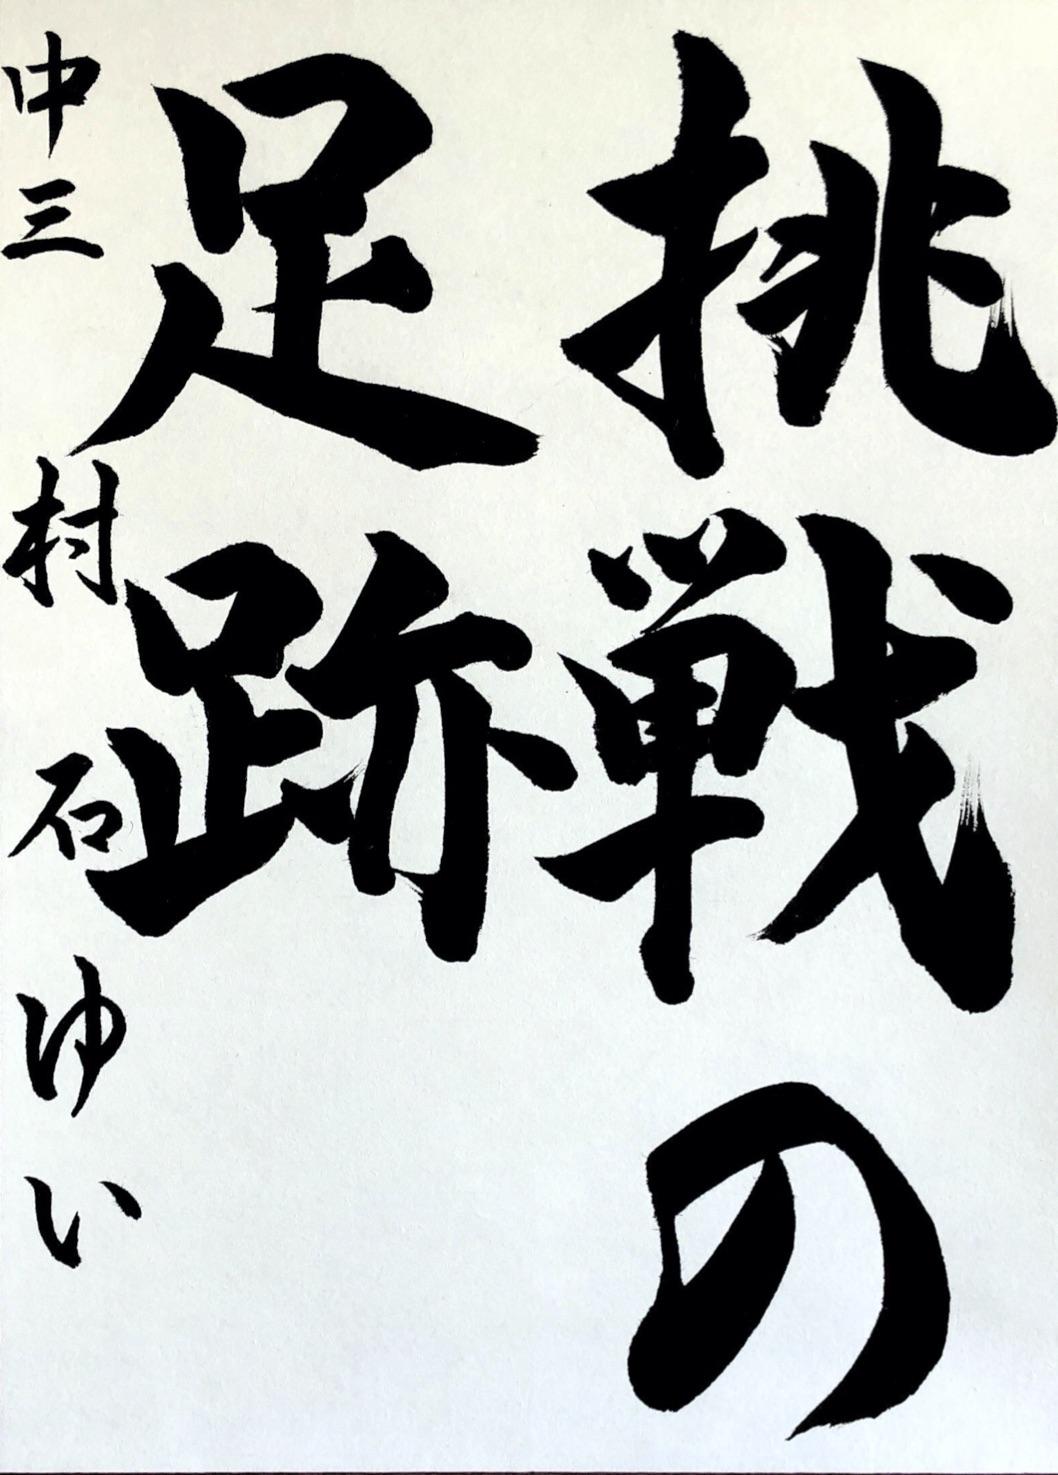 挑戦の
足跡
中三 村石ゆい